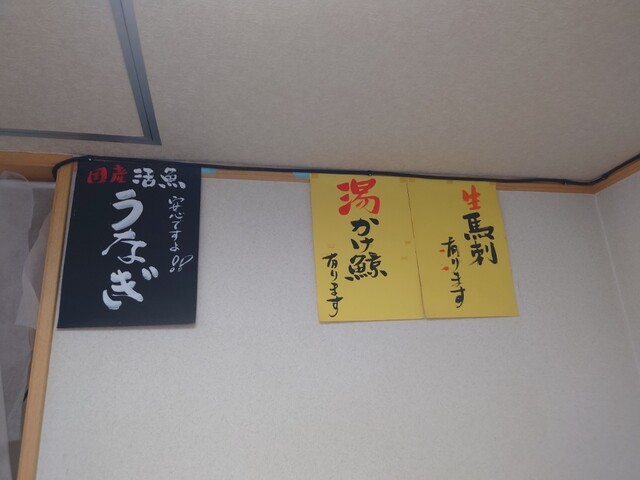 国産活魚
うなぎ
安心ですよ!!
湯かけ鯨
有ります
生馬刺
有ります